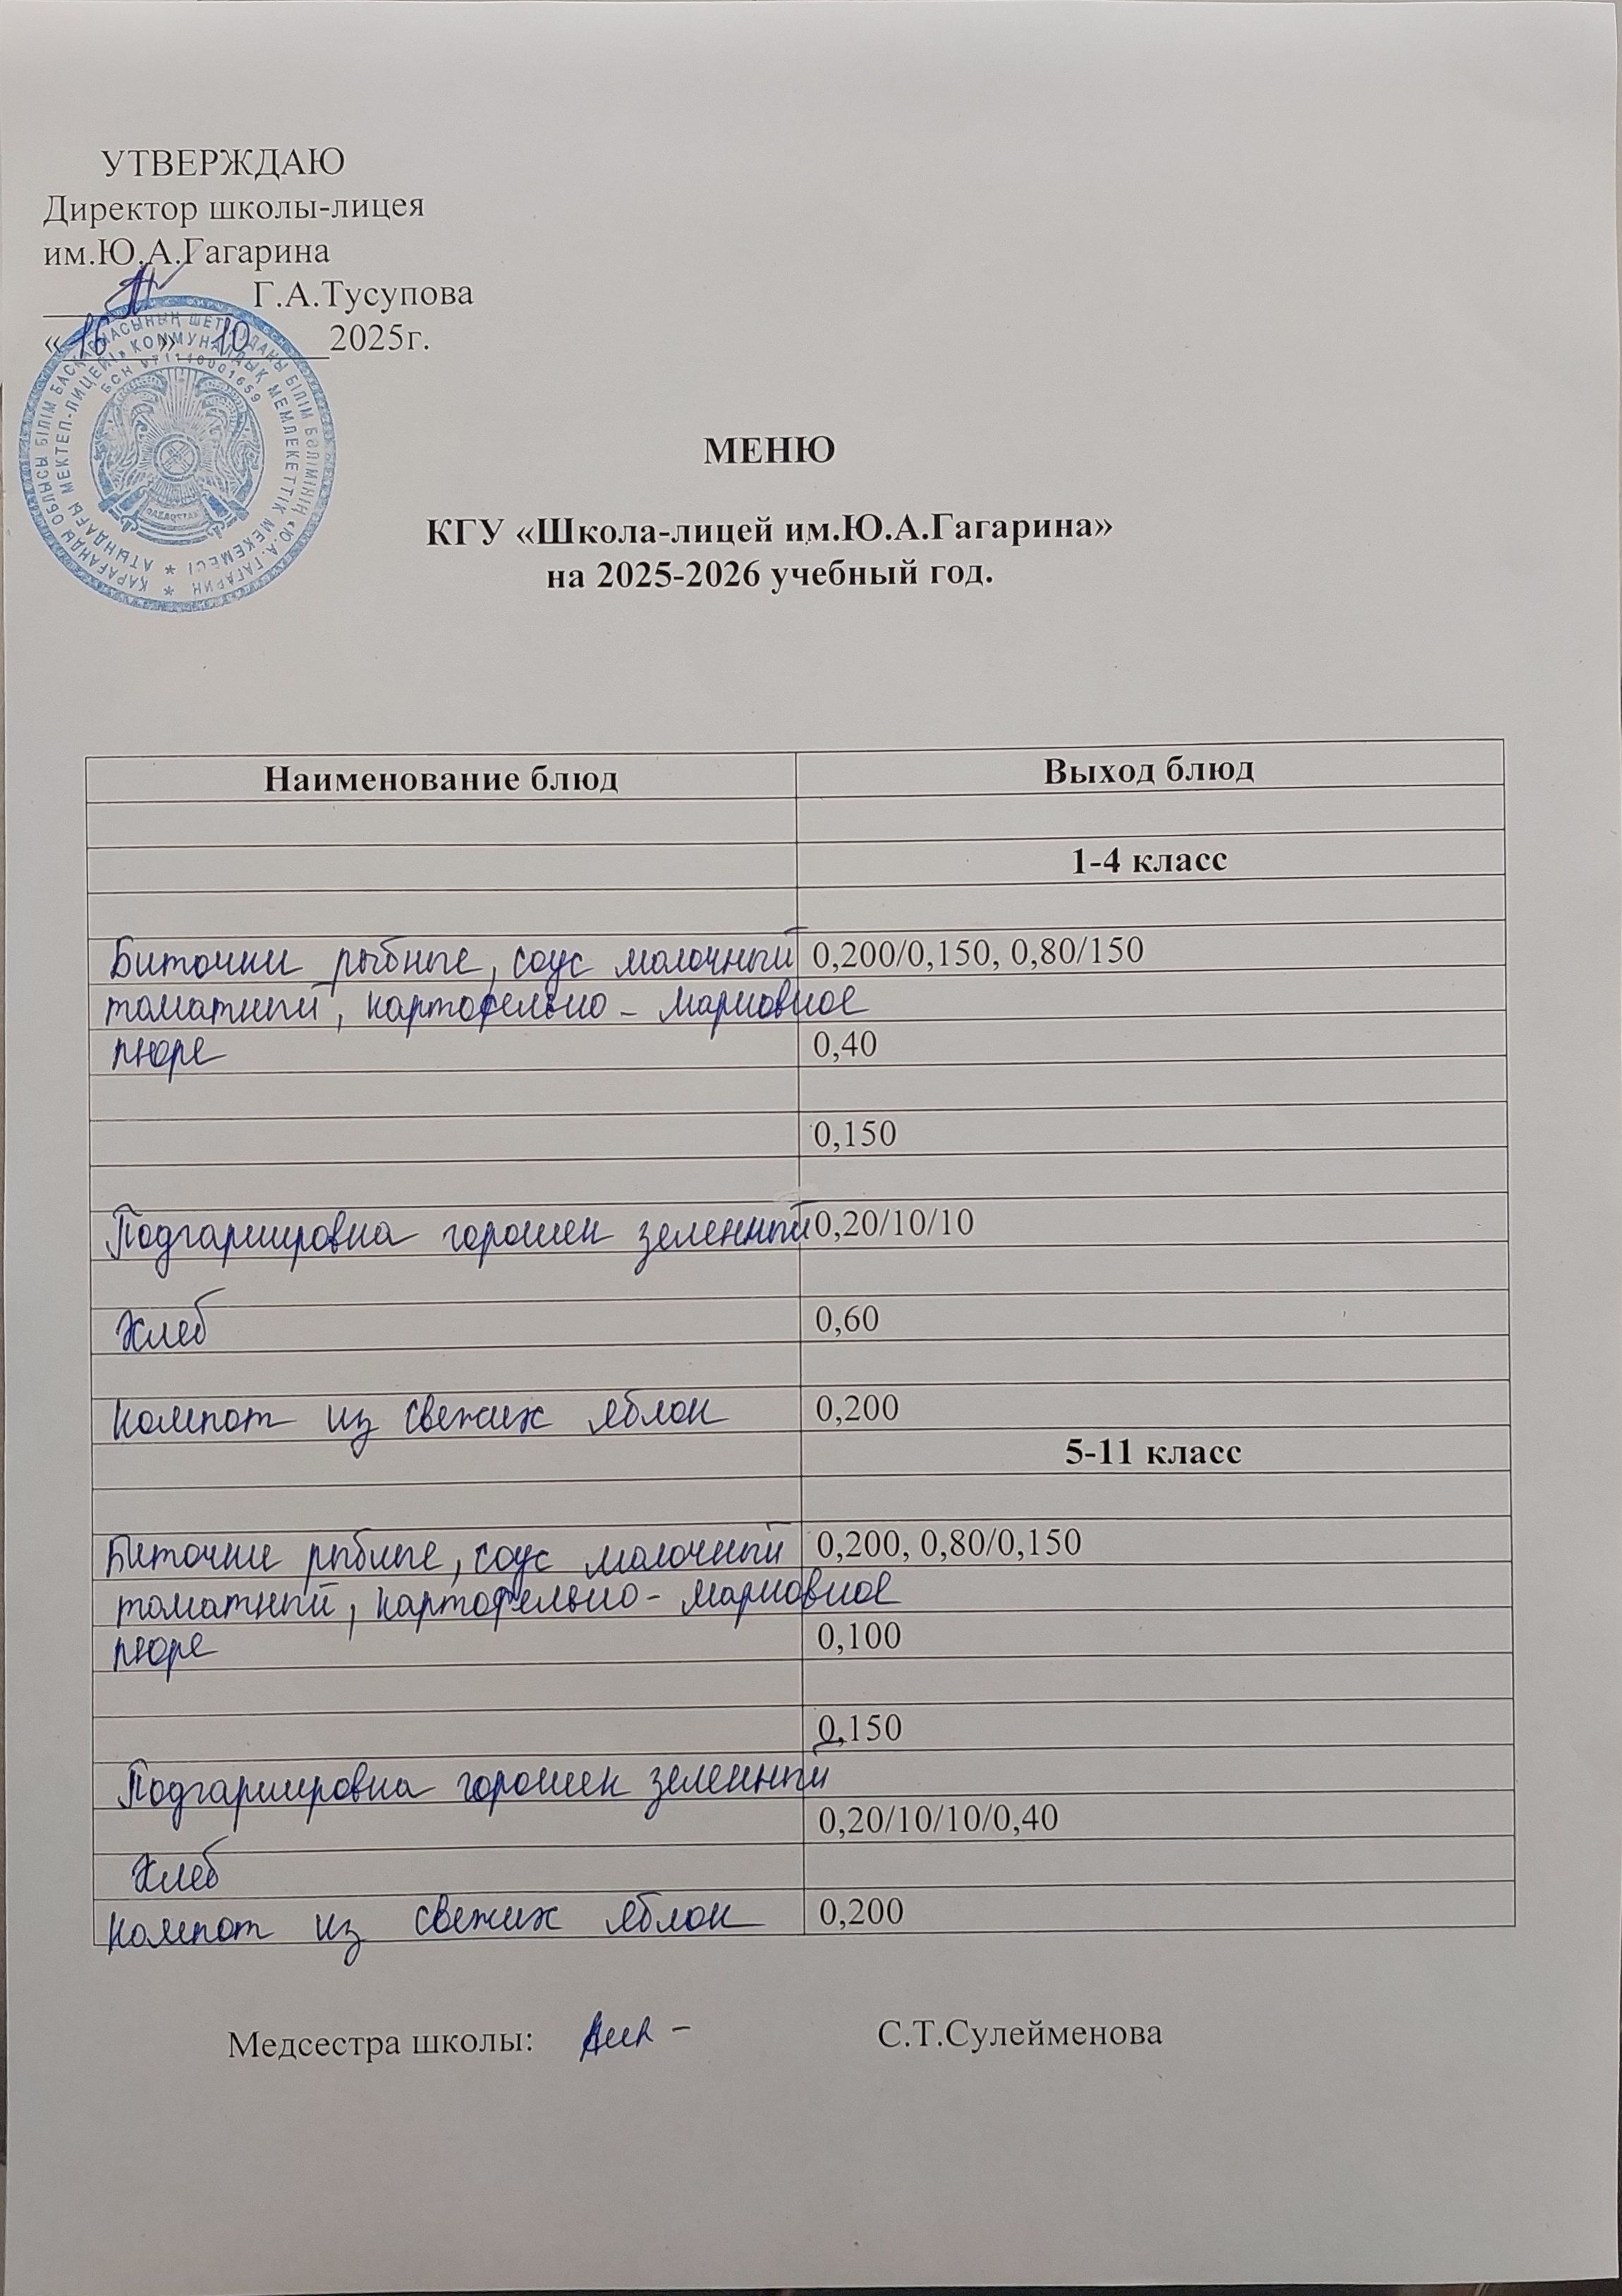 УТВЕРЖДАЮ
Директор школы-лицея
им.Ю.А.Гагарина
Г.А.Тусупова
«16» 10 2025г.
ҚАРАҒАНДЫ ОБЛЫСЫ БІЛІМ БАСҚАРМАСЫНЫҢ ШЕТ АУДАНЫ БІЛІМ БӨЛІМІНІҢ «Ю.А. ГАГАРИН
АТЫНДАҒЫ МЕКТЕП-ЛИЦЕЙІ» КОММУНАЛДЫҚ МЕМЛЕКЕТТІК МЕКЕМЕСІ
БСН 971140001659
QAZAQSTAN
МЕНЮ
КГУ «Школа-лицей им.Ю.А.Гагарина»
на 2025-2026 учебный год.
Наименование блюд Выход блюд
1-4 класс
Биточки рыбные, соус молочный 0,200/0,150, 0,80/150
томатный, картофельно - марковное
пюре 0,40
0,150
Подгарнировка горошек зеленный 0,20/10/10
Хлеб 0,60
Компот из свежих яблок 0,200
5-11 класс
Биточки рыбные, соус молочный 0,200, 0,80/0,150
томатный, картофельно - марковное
пюре 0,100
0,150
Подгарнировка горошек зеленный
0,20/10/10/0,40
Хлеб
Компот из свежих яблок 0,200
Медсестра школы: С.Т.Сулейменова